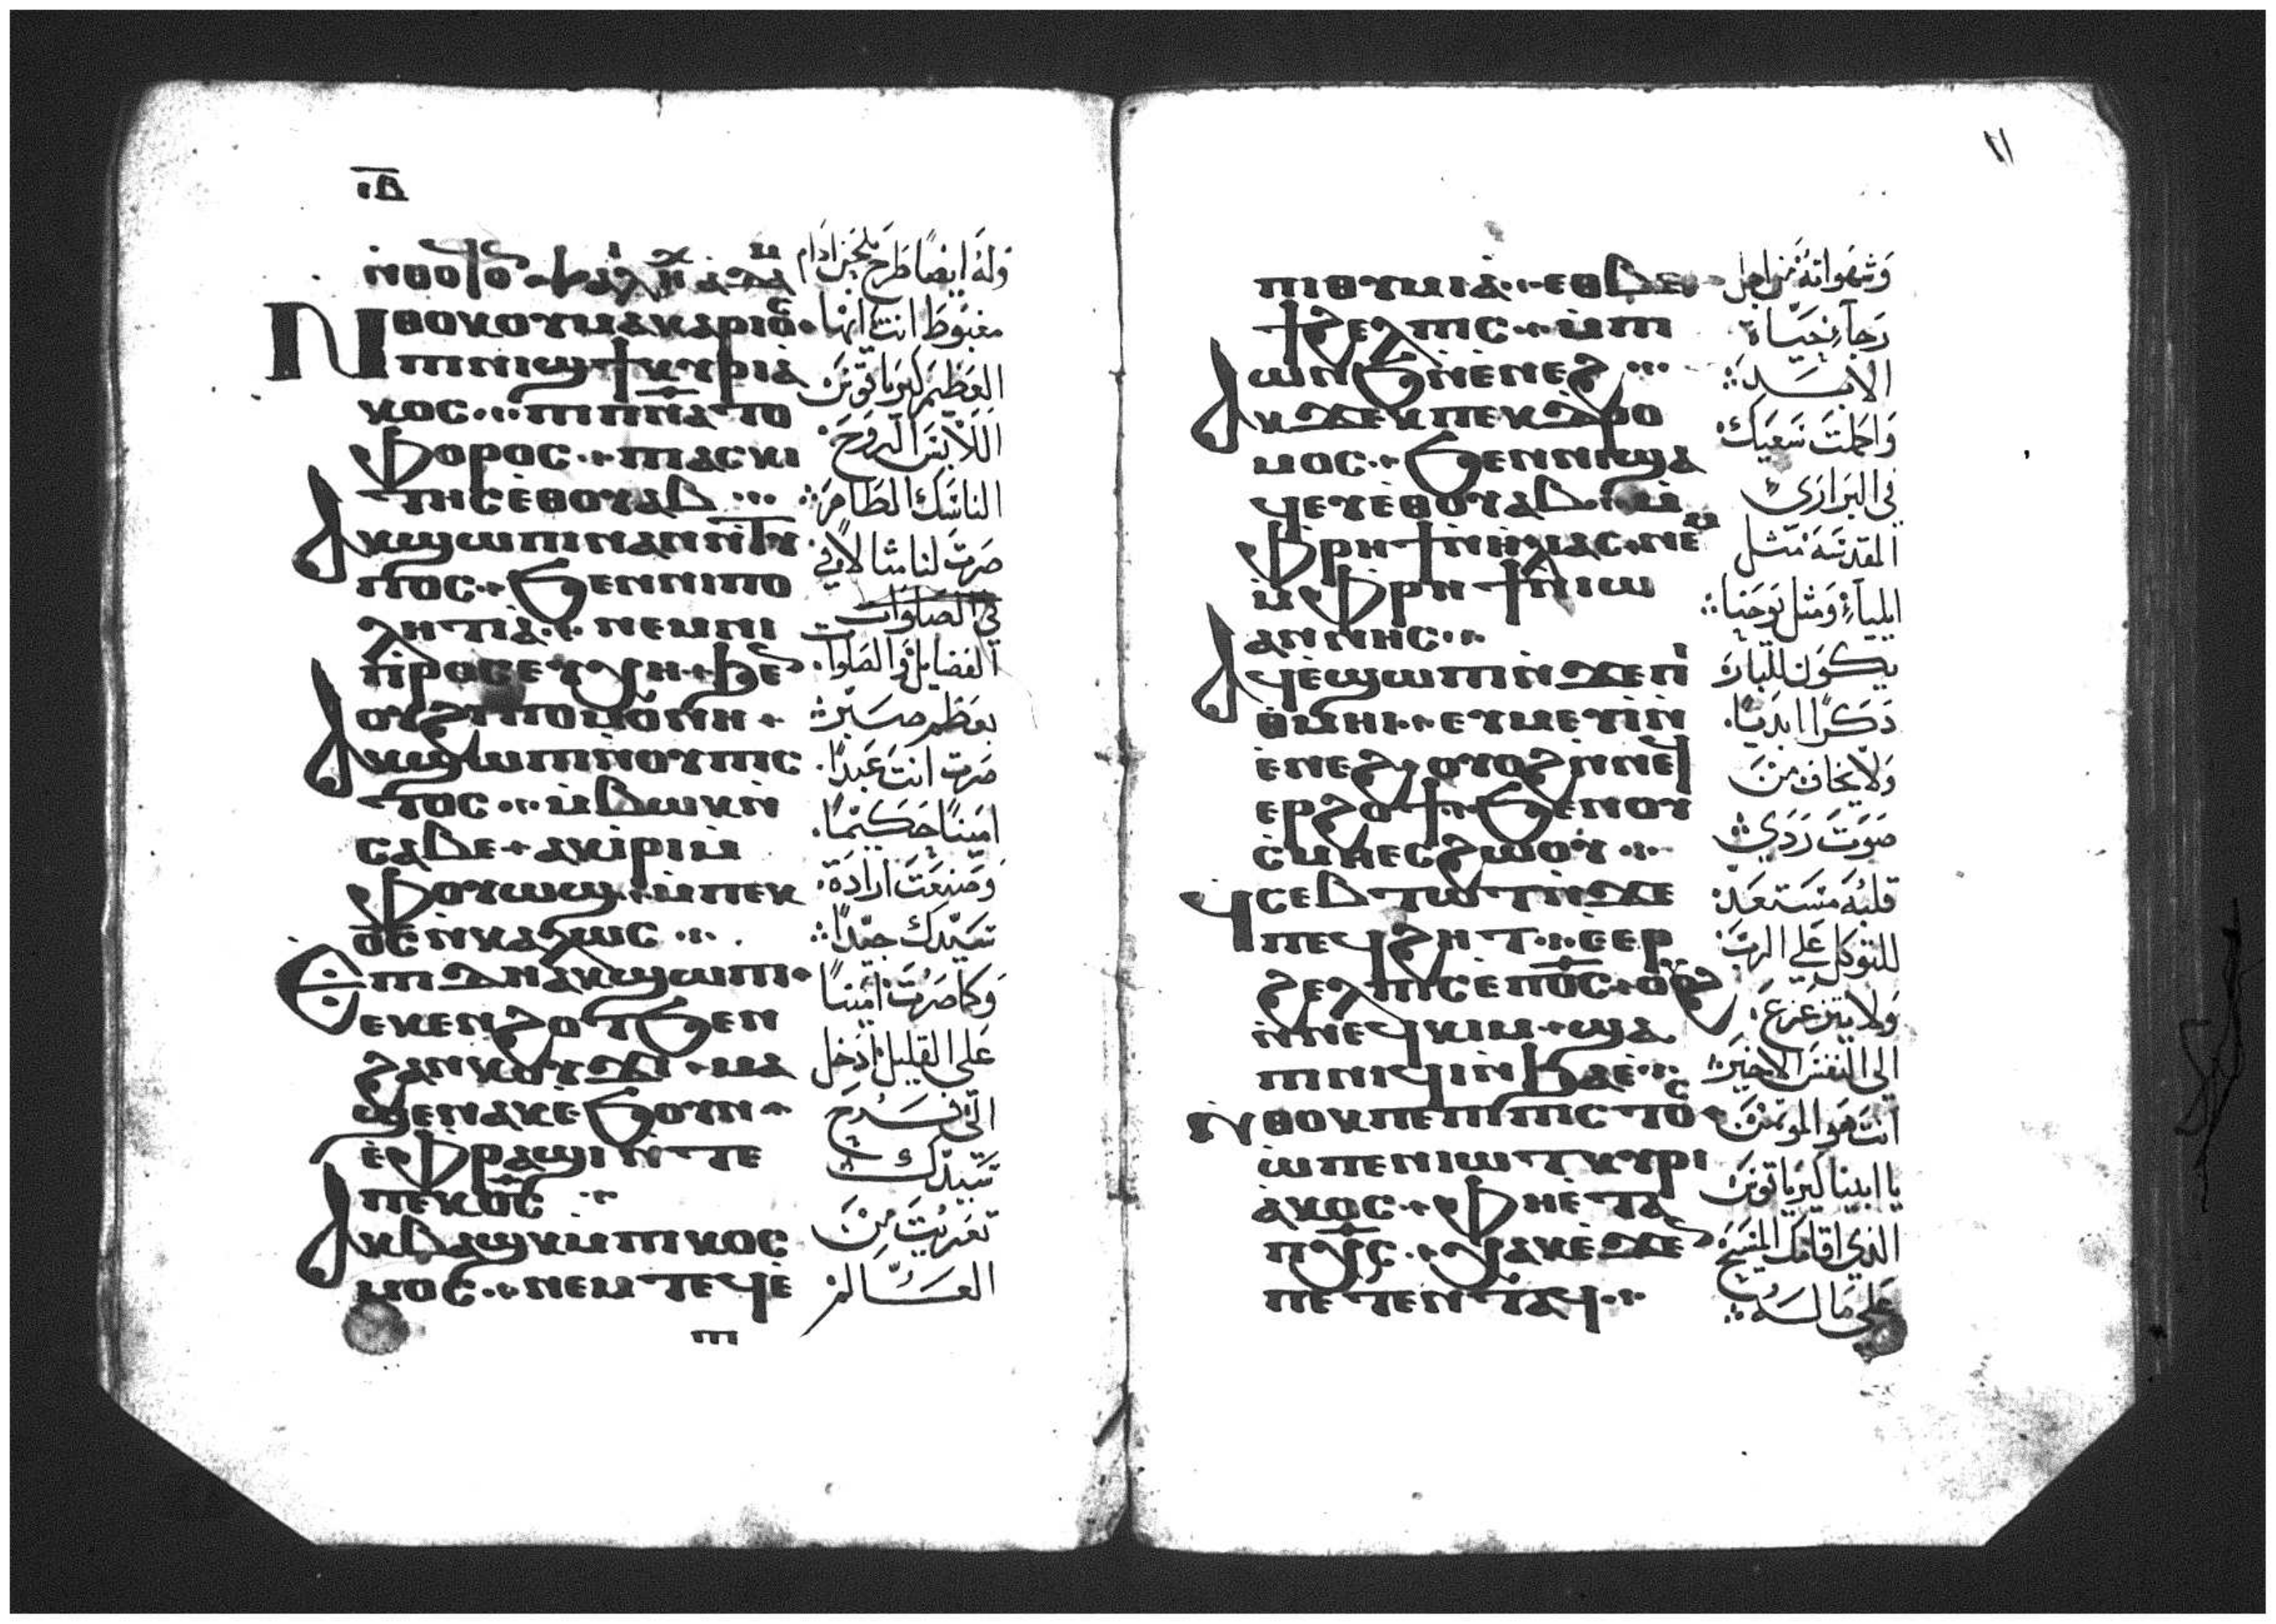 ⲓⲃ
ⲛ̀ⲑⲟⲕ ⲟⲩⲙⲁⲕⲁⲣⲓⲟⲥ
ⲡⲓⲛⲓϣϯ ⲕⲩⲣⲓⲁ
ⲕⲟⲥ ⲡⲓⲡⲛⲁⲧⲟ
ⲫⲟⲣⲟⲥ ⲡⲓⲁⲥⲕⲓ
ⲧⲏⲥ ⲉⲑⲟⲩⲁⲃ
ⲁⲕϣⲱⲡⲓ ⲛⲁⲛ ⲛ̀ⲧⲩ
ⲡⲟⲥ ϧⲉⲛ ⲛⲓⲡⲟ
ⲗⲏⲧⲓⲁ ⲛⲉⲙ ⲛⲓ
ⲡⲣⲟⲥⲉⲩⲭⲏ ϧⲉ
ⲟⲩϩⲩⲡⲟⲙⲟⲛⲏ
ⲁⲕϣⲱⲡⲓ ⲛⲟⲩⲡⲓⲥ
ⲧⲟⲥ ⲙ̀ⲃⲱⲕ ⲛ̀
ⲥⲁⲃⲉ ⲁⲕⲓⲣⲓ ⲙ̀
ⲫⲟⲩⲱϣ ⲙ̀ⲡⲉⲕ
ⲟⲥ ⲛⲕⲁⲗⲱⲥ
ⲉⲡⲓⲇⲏ ⲁⲕϣⲱⲡⲓ
ⲉⲕⲉⲛϩⲟⲧ ϧⲉⲛ
ϩⲁⲛⲕⲟⲩϫⲓ ⲙⲁ
ϣⲉⲛⲁⲕ ⲉϧⲟⲩⲛ
ⲉ̀ⲫⲣⲁϣⲓ ⲛ̀ⲧⲉ
ⲡⲉⲕⲟⲥ
ⲁⲕⲃⲁϣⲕ ⲙ̀ⲡⲓⲕⲟⲥ
ⲙⲟⲥ ⲛⲉⲙ ⲧⲉϥⲉ
ⲡⲓ
وله ايضا طرح بلحن ادام
مغبوط انت ايها
العظيم كيرياقوس
اللابس الروح
الناسك الطاهر
صرت لنا مثالا في
الفضايل والصلوات
بعظم صبر
صرت انت عبدا
امينا حكيما
وصنعت ارادة
سيدك جيدا
وكما صرت امينا
على القليل ادخل
الى فرح
سيدك
تعريت من
العالم
١١
ⲡⲓⲑⲩⲙⲓⲁ ⲉⲑⲃⲉ
ϯϩⲉⲗⲡⲓⲥ ⲙ̀ⲡⲓ
ⲱⲛϧ ⲛ̀ⲉⲛⲉϩ
ⲁⲕϫⲉⲕ ⲡⲉⲕⲇⲣⲟ
ⲙⲟⲥ ϧⲉⲛ ⲛⲓϣⲁ
ϥⲉⲩ ⲉⲑⲟⲩⲁⲃ ⲙ̀
ⲫⲣⲏϯ ⲛ̀ⲏⲗⲓⲁⲥ ⲛⲉⲙ
ⲙ̀ⲫⲣⲏϯ ⲛ̀ⲓⲱ
ⲁⲛⲛⲏⲥ
ⲁϥⲉϣⲱⲡⲓ ⲛ̀ϫⲉ ⲡⲓ
ⲑⲙⲏⲓ ⲉⲩⲙⲉⲩⲓ ⲛ̀
ⲉⲛⲉϩ ⲟⲩⲟϩ ⲛ̀ⲛⲉϥ
ⲉⲣϩⲟϯ ϧⲉⲛ ⲟⲩ
ⲥⲙⲏ ⲉⲥϩⲱⲟⲩ
ϥⲥⲉⲃⲧⲱⲧ ⲛ̀ϫⲉ
ⲡⲉϥϩⲏⲧ ⲉⲉⲣ
ϩⲉⲗⲡⲓⲥ ⲉⲡⲟⲥ ⲟⲩⲟϩ
ⲛ̀ⲛⲉϥⲕⲓⲙ ϣⲁ
ⲡⲓⲛⲓϥⲓ ⲛ̀ϧⲁⲉ
ⲛ̀ⲑⲟⲕ ⲡⲉ ⲡⲓⲡⲓⲥⲧⲟⲥ
ⲱ ⲡⲉⲛⲓⲱⲧ ⲕⲩⲣⲓ
ⲁⲕⲟⲥ ⲫⲏⲉⲧⲁ
ⲡⲭⲥ ⲭⲁⲕ ⲉϫⲉⲛ
ⲡⲉⲧⲉⲛⲧⲁϥ
وشهواته من اجل
رجاء حياة
الابد
واكملت سعيك
في البراري
المقدسة مثل
ايلياء ومثل يوحنا
يكون للبار
ذكرا ابديا
ولا يخاف من
صوت ردي
قلبه مستعد
للتوكل على الرب
ولا يتزعزع
الى النفس الاخير
انت هو المؤتمن
يا ابينا كيرياقوس
الذي اقامك المسيح
على ما له